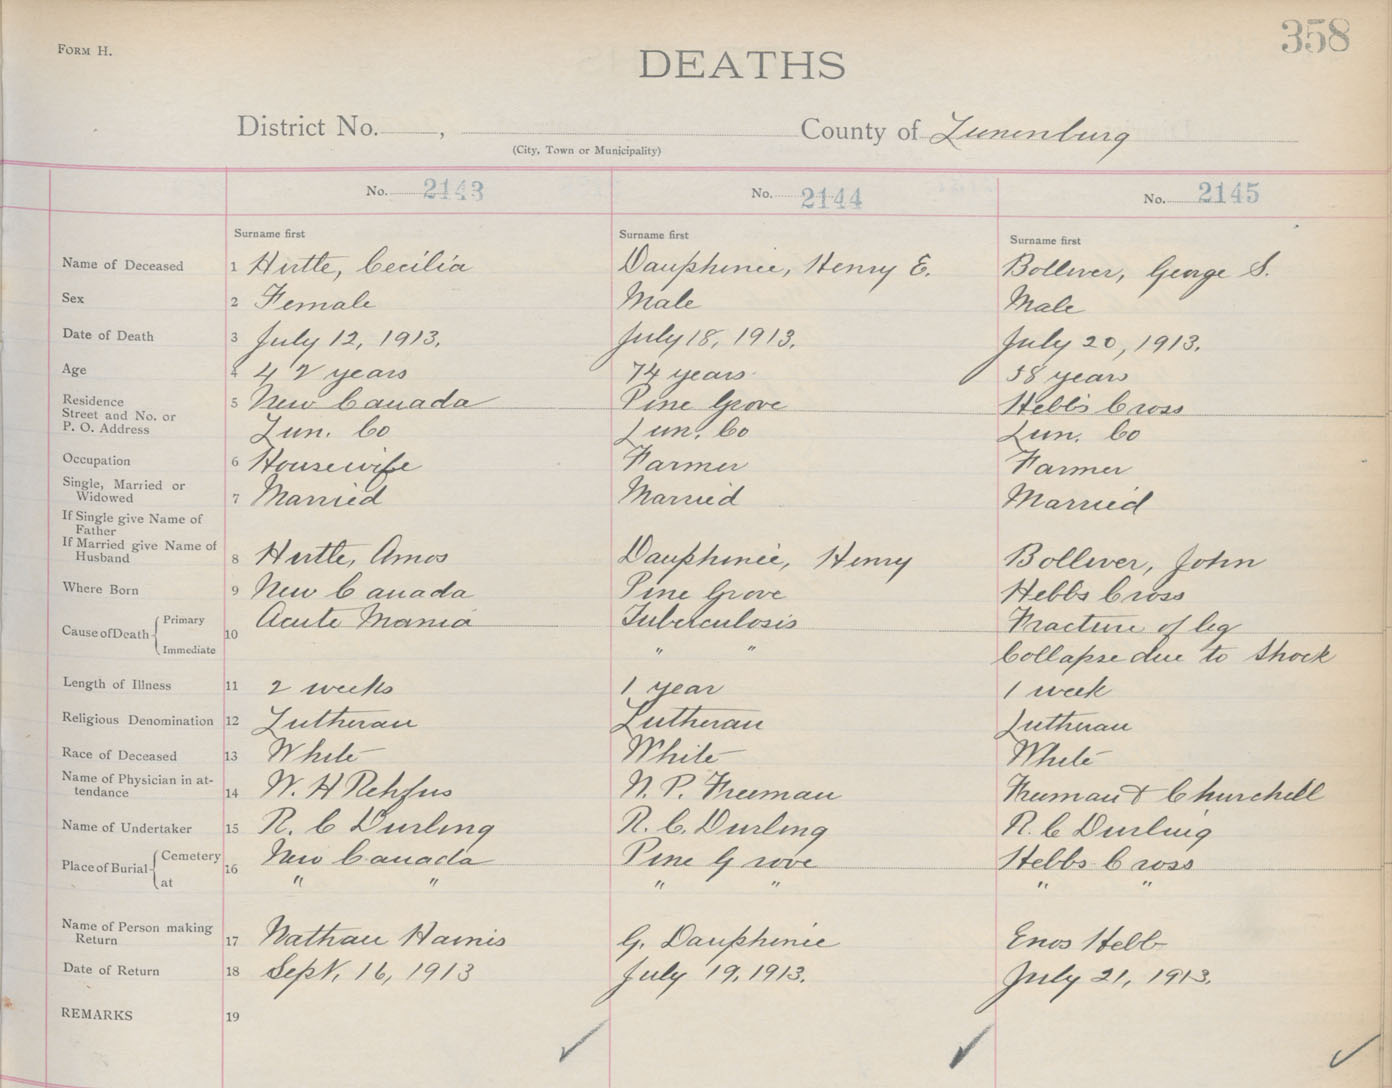 358
FORM H.
DEATHS
District No. , County of Lunenburg
(City, Town or Municipality)
No. 2143 No. 2144 No. 2145
Surname first Surname first Surname first
Name of Deceased 1 Hirtle, Cecilia Dauphinee, Henry E. Bolliver, George S.
Sex 2 Female Male Male
Date of Death 3 July 12, 1913. July 18, 1913. July 20, 1913.
Age 4 42 years 74 years 38 years
Residence 5 New Canada Pine Grove Hebb's Cross
Street and No. or
P. O. Address Lun. Co Lun. Co Lun. Co
Occupation 6 Housewife Farmer Farmer
Single, Married or
Widowed 7 Married Married Married
If Single give Name of
Father
If Married give Name of
Husband 8 Hirtle, Amos Dauphinee, Henry Bolliver, John
Where Born 9 New Canada Pine Grove Hebbs Cross
Cause of Death Primary 10 Acute Mania Tuberculosis Fracture of leg
Immediate " " Collapse due to Shock
Length of Illness 11 2 weeks 1 year 1 week
Religious Denomination 12 Lutheran Lutheran Lutheran
Race of Deceased 13 White White White
Name of Physician in at-
tendance 14 W. H Rehfus N. P. Freeman Freeman & Churchill
Name of Undertaker 15 R. C Durling R. C. Durling R. C Durling
Place of Burial Cemetery 16 New Canada Pine Grove Hebbs Cross
at " " " " " "
Name of Person making
Return 17 Nathan Harnis G. Dauphinee Enos Hebb
Date of Return 18 Sept. 16, 1913 July 19, 1913. July 21, 1913.
REMARKS 19